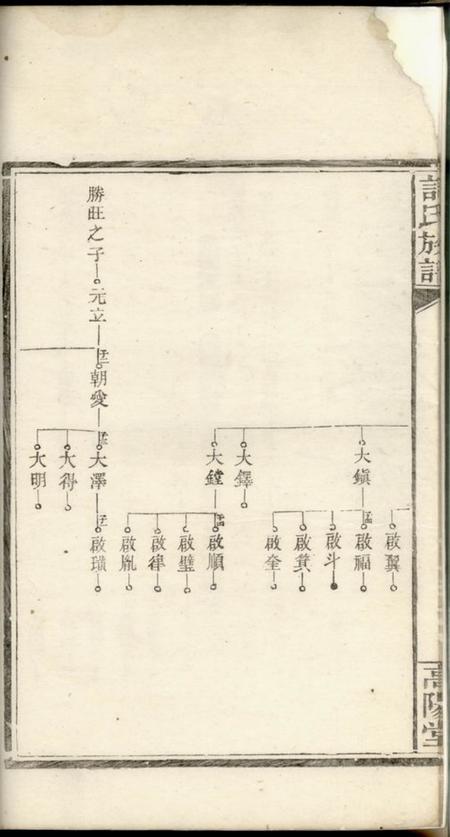 許氏族譜
高陽堂
啟翼
大鎮
啟福
啟斗
啟箕
啟奎
大鐸
大鏜
啟順
啟璧
啟律
啟胤
勝旺之子
元立
朝愛
大澤
啟璜
大得
大明